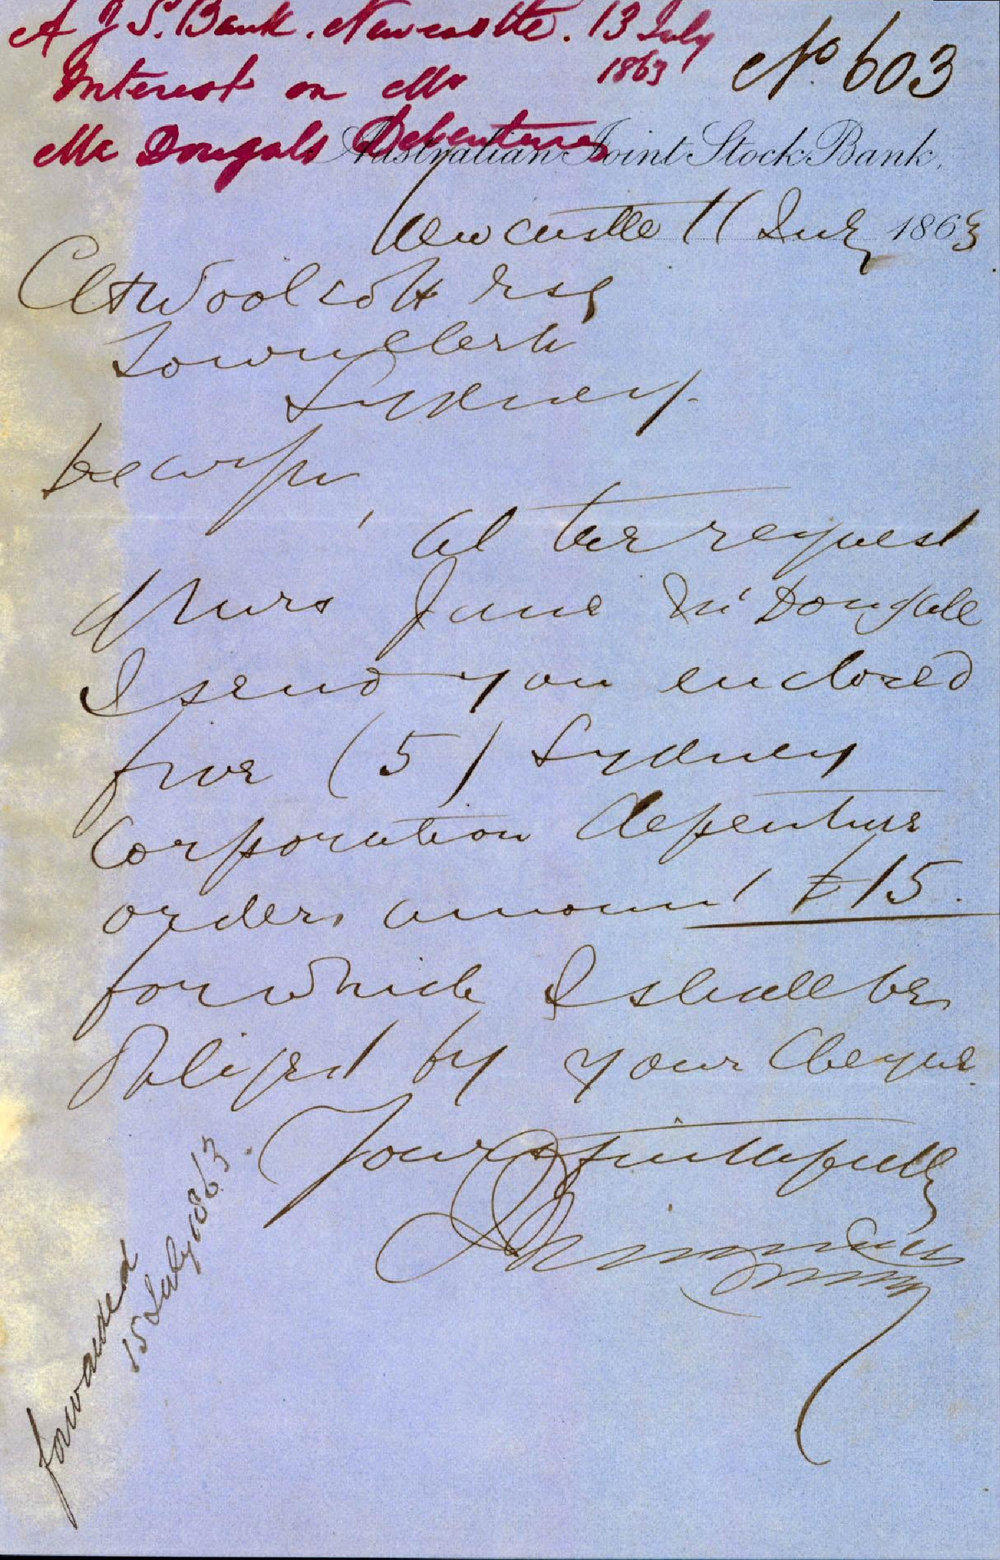 A J S. Bank. Newcastle. 13 July
1863
Interest on Mr
Mc Dougals Debentures
No. 603
Australian Joint Stock Bank.
Newcastle 11 July 1863
C H Woolcott Esq
Town Clerk
Sydney.
Dear Sir,
At the request
of Mrs Jane McDougall
I send you enclosed
five (5) Sydney
Corporation Depenture
orders amount £15.
for which I shall be
obliged by your Cheque.
Yours faithfully
forwarded
15 July 1863